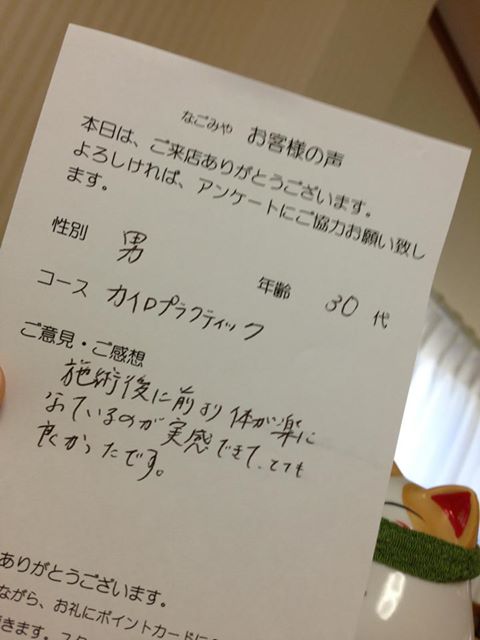 なごみや お客様の声
本日は、ご来店ありがとうございます。
よろしければ、アンケートにご協力お願い致し
ます。
性別 男 年齢 30 代
コース カイロプラクティック
ご意見・ご感想
施術後に前より体が楽に
なっているのが実感できて、とても
良かったです。
ありがとうございます。
ながら、お礼にポイントカードに
きます。